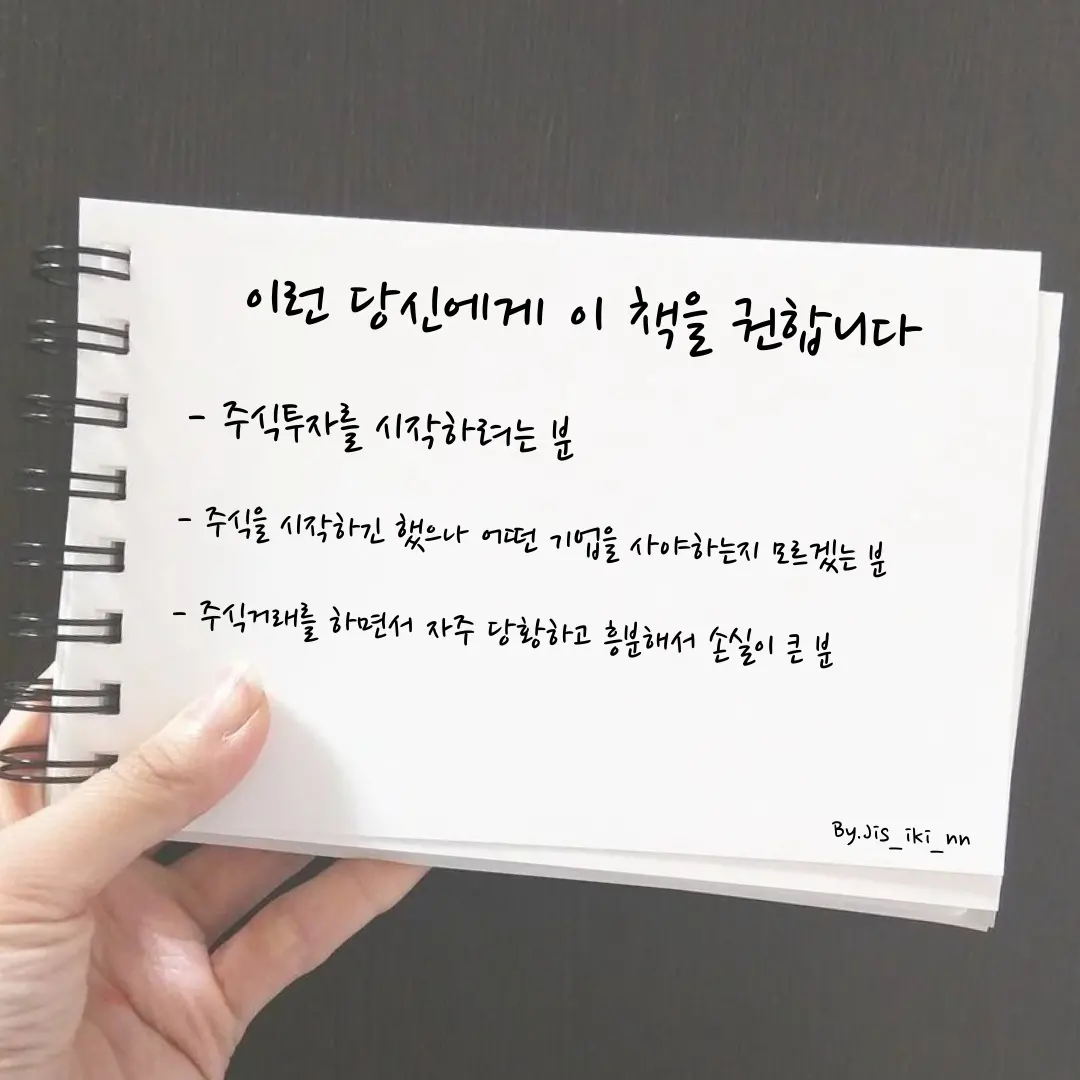 이런 당신에게 이 책을 권합니다
- 주식투자를 시작하려는 분
- 주식을 시작하긴 했으나 어떤 기업을 사야하는지 모르겠는 분
- 주식거래를 하면서 자주 당황하고 흥분해서 손실이 큰 분
By.Jis_iki_nn